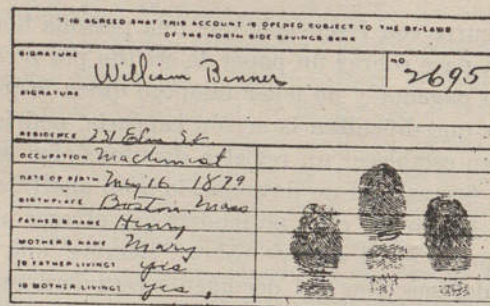 T IS AGREED THAT THIS ACCOUNT IS OPENED SUBJECT TO THE BY-LAWS
OF THE NORTH SIDE SAVINGS BANK
SIGNATURE William Binner NO. 2695
SIGNATURE
RESIDENCE 231 Elm St
OCCUPATION Machinist
DATE OF BIRTH May 16 1879
BIRTHPLACE Boston, Mass
FATHER'S NAME Henry
MOTHER'S NAME Mary
IS FATHER LIVING? yes
IS MOTHER LIVING? yes,